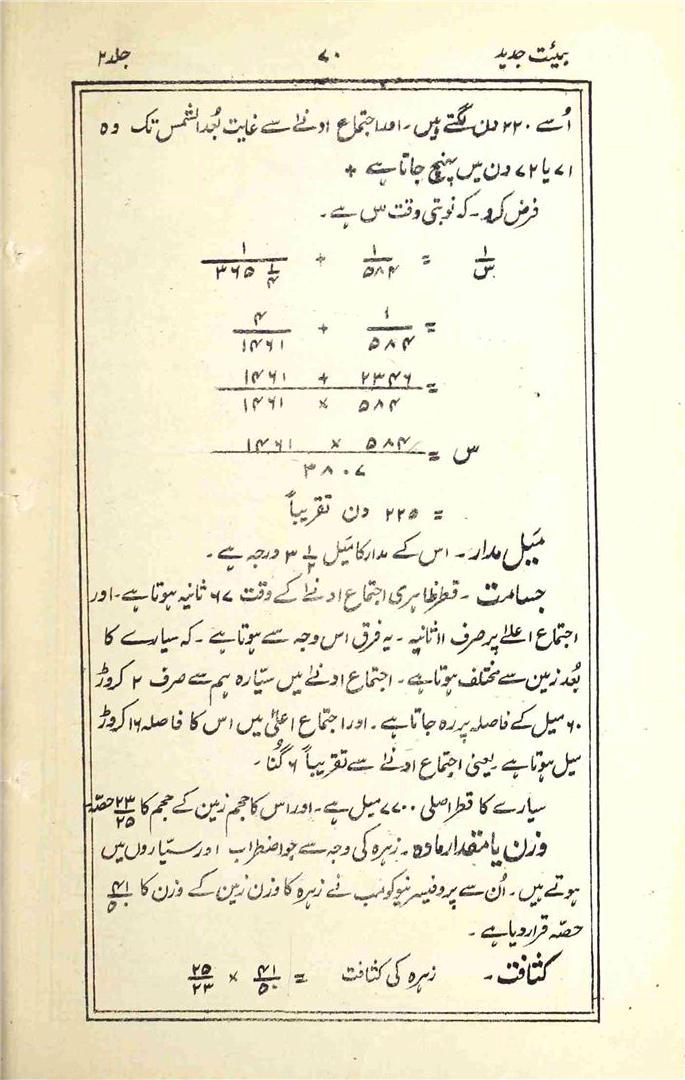 ہیئت جدید ۷۰ جلد ۲
اُسے ۲۲۰ دن لگتے ہیں ۔ اور اجتماع ادنےٰ سے غایت بُعد الشمس تک وہ
۷۱ یا ۷۲ دن میں پہنچ جاتا ہے +
فرض کرو ۔ کہ نوبتی وقت س ہے ۔
۱/س = ۱/۵۸۴ + ۱/۳۶۵ ۱/۴
= ۱/۵۸۴ + ۴/۱۴۶۱
= ۲۳۴۶ + ۱۴۶۱ / ۵۸۴ × ۱۴۶۱
س = ۵۸۴ × ۱۴۶۱ / ۳۸۰۷
= ۲۲۵ دن تقریباً
مَیل مدار ۔ اس کے مدار کا میل ۳ ۱/۲ درجہ ہے ۔
جسامت ۔ قطر ظاہری اجتماع ادنےٰ کے وقت ۶۷ ثانیہ ہوتا ہے ۔ اور
اجتماع اعلےٰ پر صرف ۱۱ ثانیہ ۔ یہ فرق اس وجہ سے ہوتا ہے ۔ کہ سیارے کا
بُعد زمین سے مختلف ہوتا ہے ۔ اجتماع ادنےٰ میں سیّارہ ہم سے صرف ۲ کروڑ
۶۰ میل کے فاصلہ پر رہ جاتا ہے ۔ اور اجتماع اعلیٰ میں اس کا فاصلہ ۱۶ کروڑ
میل ہوتا ہے یعنی اجتماع ادنےٰ سے تقریباً ۶ گُنا ۔
سیارے کا قطر اصلی ۷۷۰۰ میل ہے ۔ اور اس کا حجم زمین کے حجم کا ۲۳/۲۵ حصّہ
وزن یا مقدار مادہ ۔ زہرہ کی وجہ سے جو اضطراب اور سیّاروں میں
ہوتے ہیں ۔ اُن سے پروفیسر نیوکومب نے زہرہ کا وزن زمین کے وزن کا ۴۱/۵۰
حصّہ قرار دیا ہے ۔
کثافت ۔ زہرہ کی کثافت = ۴۱/۵۰ × ۲۵/۲۳